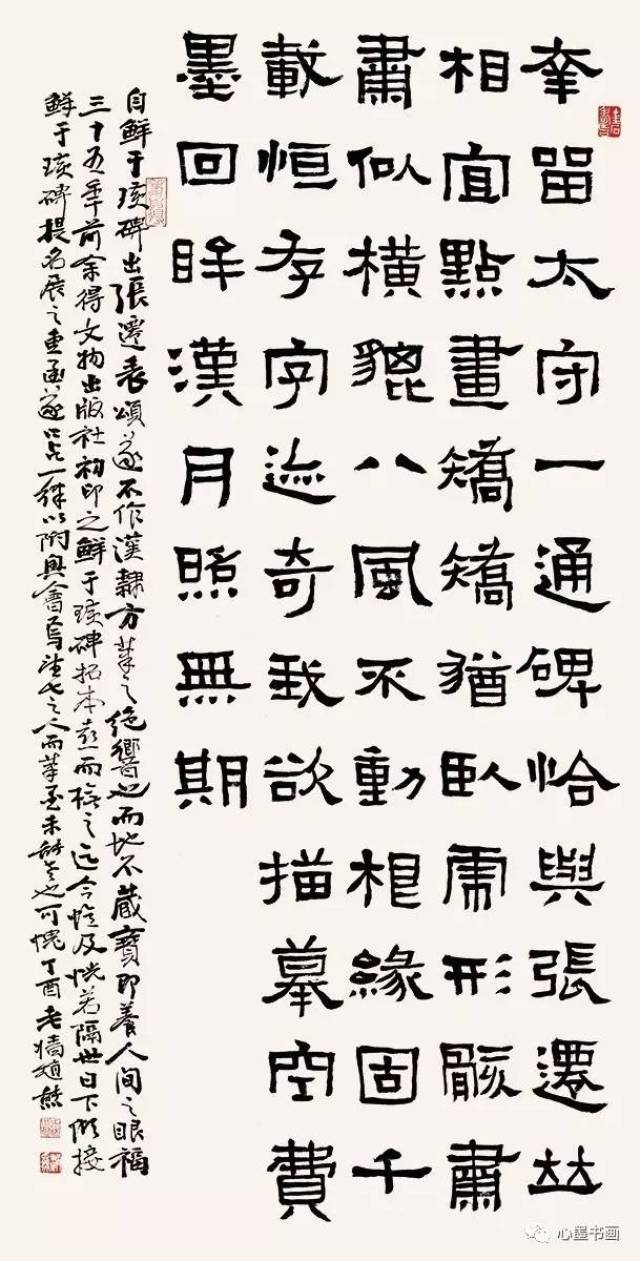 幸留太守一通碑恰與張遷並
相宜點畫矯矯猶臥虎形骸肅
肅似橫貔八風不動根緣固千
載恒存字迹奇我欲描摹空費
墨回眸漢月照無期
自鮮于璜碑出張遷表頌遂不作漢隸方筆之絕響也而地不藏寶即養人間之眼福
三十五年前余得文物出版社初印之鮮于璜碑拓本而臨之迄今憶及恍若隔世日下接
鮮于璜碑提名展之遂一以附興會焉之人而筆未也可愧丁酉老趙熊
心墨书画